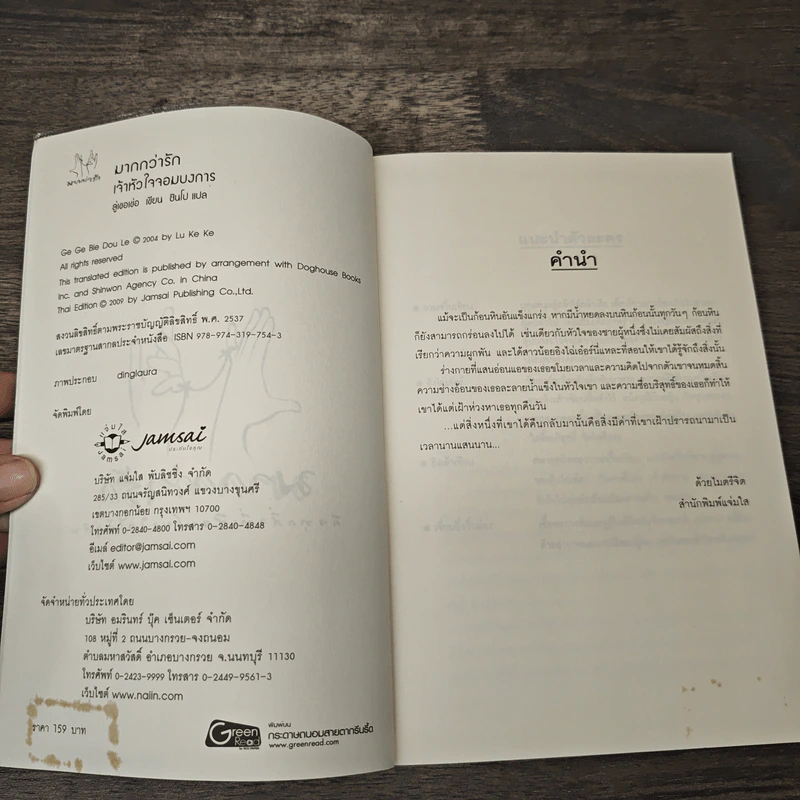 มากกว่ารัก
มากกว่ารัก
เจ้าหัวใจจอมบงการ
ลู่เชอเข่อ เขียน ชินโป แปล
Ge Ge Bie Dou Le © 2004 by Lu Ke Ke
All rights reserved
This translated edition is published by arrangement with Doghouse Books
Inc. and Shinwon Agency Co. in China
Thai Edition © 2009 by Jamsai Publishing Co.,Ltd.
สงวนลิขสิทธิ์ตามพระราชบัญญัติลิขสิทธิ์ พ.ศ. 2537
เลขมาตรฐานสากลประจำหนังสือ ISBN 978-974-319-754-3
ภาพประกอบ dinglaura
จัดพิมพ์โดย
แจ่มใส
JAMSAI
Jamsai
บริษัท แจ่มใส พับลิชชิ่ง จำกัด
285/33 ถนนจรัญสนิทวงศ์ แขวงบางขุนศรี
เขตบางกอกน้อย กรุงเทพฯ 10700
โทรศัพท์ 0-2840-4800 โทรสาร 0-2840-4848
อีเมล์ editor@jamsai.com
เว็บไซต์ www.jamsai.com
จัดจำหน่ายทั่วประเทศโดย
บริษัท อมรินทร์ บุ๊ค เซ็นเตอร์ จำกัด
108 หมู่ที่ 2 ถนนบางกรวย-จงถนอม
ตำบลมหาสวัสดิ์ อำเภอบางกรวย จ.นนทบุรี 11130
โทรศัพท์ 0-2423-9999 โทรสาร 0-2449-9561-3
เว็บไซต์ www.naiin.com
ราคา 159 บาท
Green Read
พิมพ์บน
กระดาษถนอมสายตากรีนรี้ด
www.greenread.com
คำนำ
แม้จะเป็นก้อนหินอันแข็งแกร่ง หากมีน้ำหยดลงบนหินก้อนนั้นทุกวันๆ ก้อนหิน
ก็ยังสามารถกร่อนลงไปได้ เช่นเดียวกับหัวใจของชายผู้หนึ่งซึ่งไม่เคยสัมผัสถึงสิ่งที่
เรียกว่าความผูกพัน และได้สาวน้อยอิงไฉ่เอ๋อร์นี่แหละที่สอนให้เขาได้รู้จักถึงสิ่งนั้น
ร่างกายที่แสนอ่อนแอของเธอขโมยเวลาและความคิดไปจากตัวเขาจนหมดสิ้น
ความช่างอ้อนของเธอละลายน้ำแข็งในหัวใจเขา และความซื่อบริสุทธิ์ของเธอก็ทำให้
เขาได้แต่เฝ้าห่วงหาเธอทุกคืนวัน
...แต่สิ่งหนึ่งที่เขาได้คืนกลับมานั้นคือสิ่งมีค่าที่เขาเฝ้าปรารถนามาเป็น
เวลานานแสนนาน...
ด้วยไมตรีจิต
สำนักพิมพ์แจ่มใส